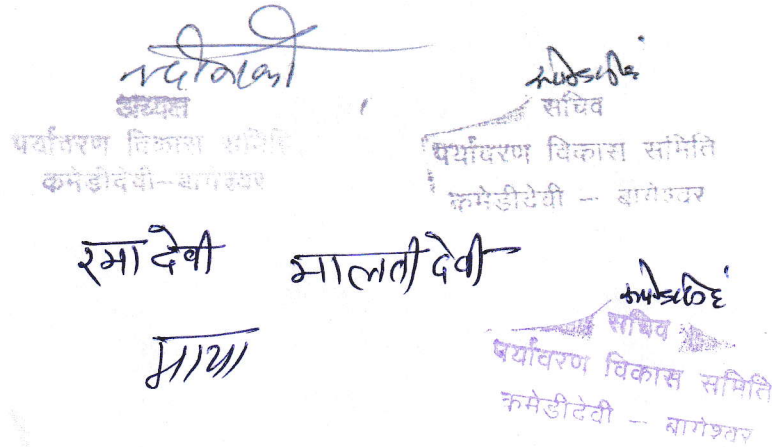 अध्यक्ष
पर्यावरण विकास समिति
कमेडीदेवी-बागेश्वर
सचिव
पर्यावरण विकास समिति
कमेडीदेवी - बागेश्वर
रमा देवी
मालती देवी
माया
सचिव
पर्यावरण विकास समिति
कमेडीदेवी - बागेश्वर